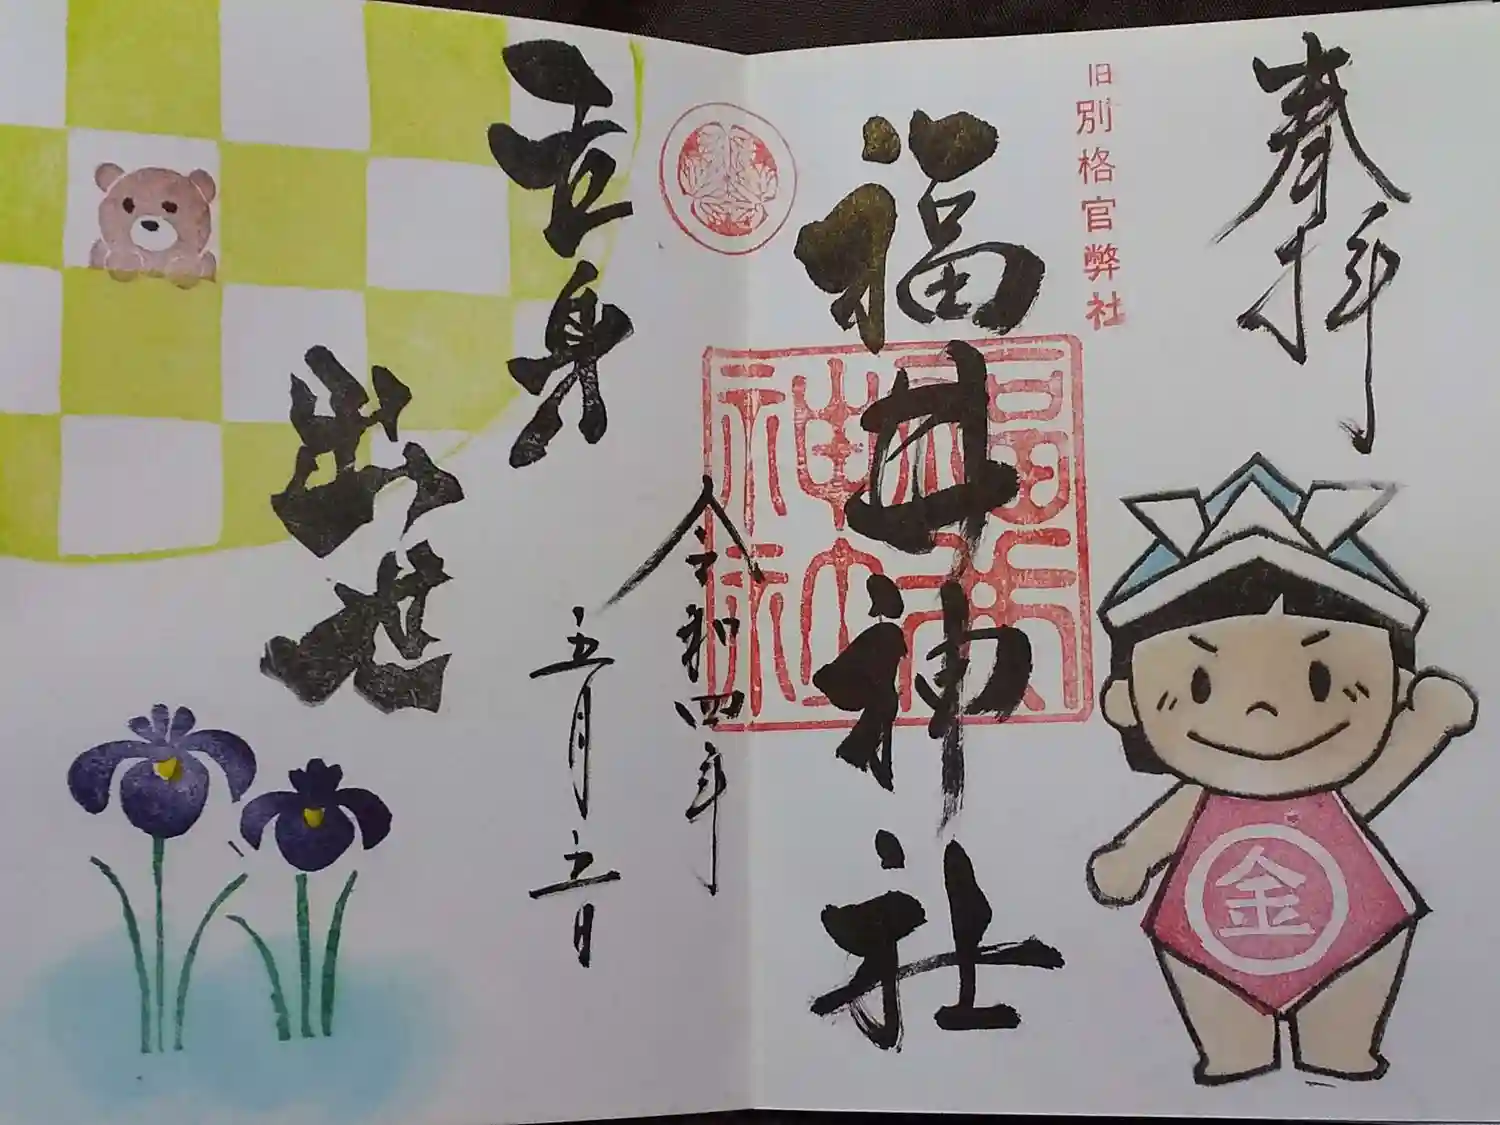 奉拝
旧別格官弊社
福井神社
令和四年
五月五日
立身
出世
金